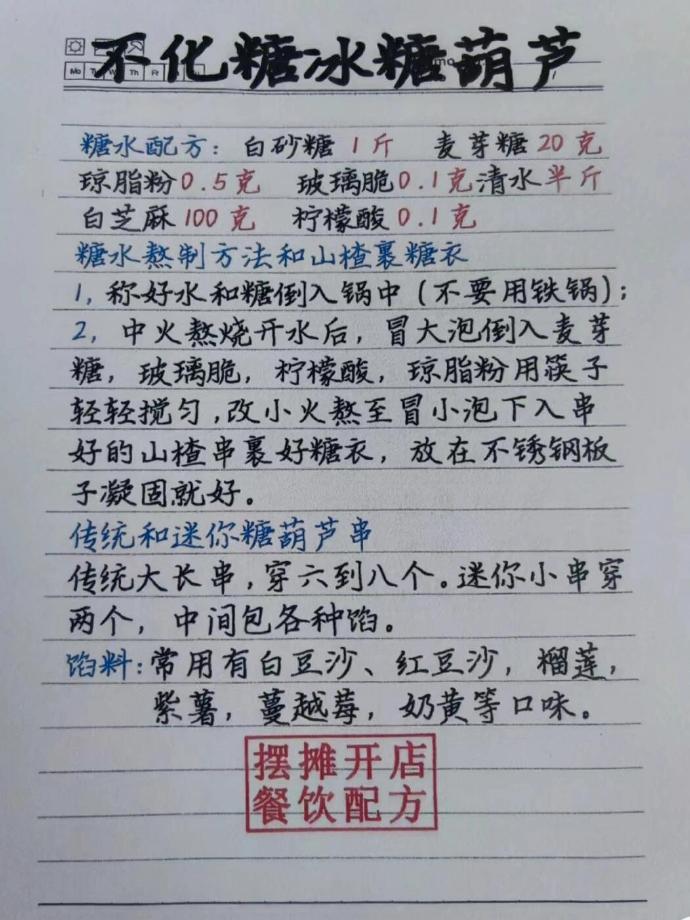 不化糖冰糖葫芦
糖水配方：白砂糖1斤 麦芽糖20克
琼脂粉0.5克 玻璃脆0.1克清水半斤
白芝麻100克 柠檬酸0.1克
糖水熬制方法和山楂裹糖衣
1，称好水和糖倒入锅中（不要用铁锅）；
2，中火熬烧开水后，冒大泡倒入麦芽
糖，玻璃脆，柠檬酸，琼脂粉用筷子
轻轻搅匀，改小火熬至冒小泡下入串
好的山楂串裹好糖衣，放在不锈钢板
子凝固就好。
传统和迷你糖葫芦串
传统大长串，穿六到八个。迷你小串穿
两个，中间包各种馅。
馅料：常用有白豆沙、红豆沙，榴莲，
紫薯，蔓越莓，奶黄等口味。
摆摊开店
餐饮配方